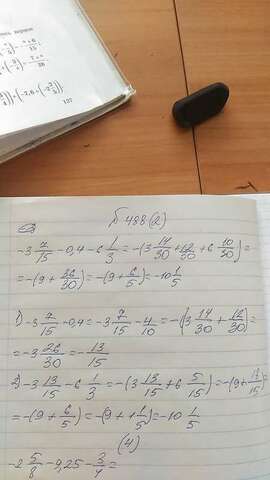 137
№ 488(2)
-3 7/15 - 0,4 - 6 1/3 = -(3 14/30 + 12/30 + 6 10/30) =
= -(9 + 36/30) = -(9 + 6/5) = -10 1/5
1) -3 7/15 - 0,4 = -3 7/15 - 4/10 = -(3 14/30 + 12/30) =
= -3 26/30 = - 13/15
2) -3 13/15 - 6 1/3 = -(3 13/15 + 6 5/15) = -(9 + 18/15) =
= -(9 + 6/5) = -(9 + 1 1/5) = -10 1/5
(4)
-2 5/8 - 9,25 - 3/4 =